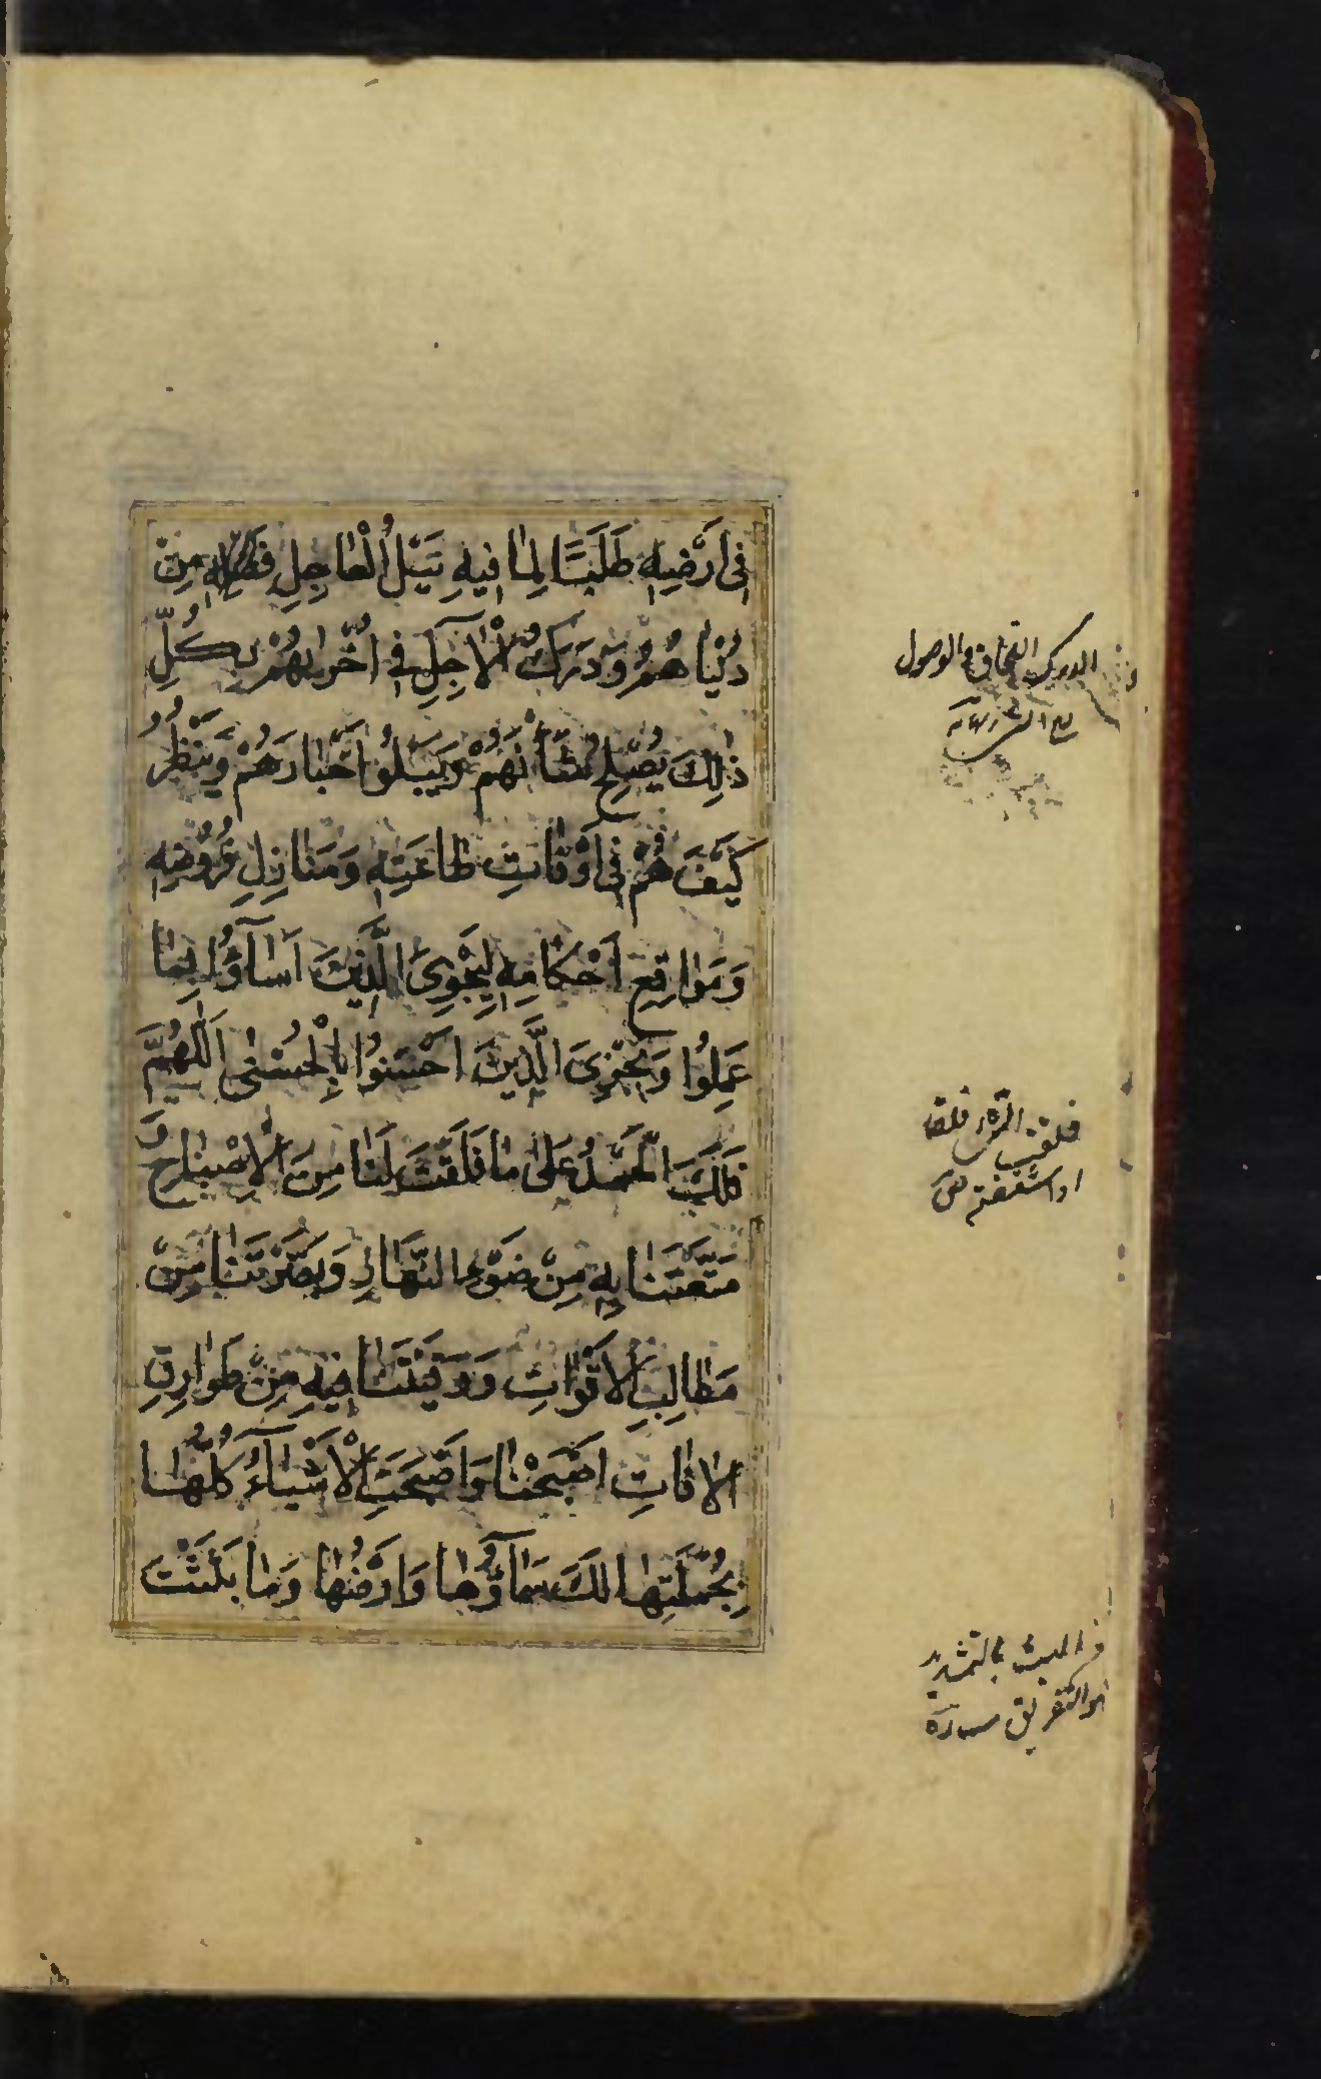 فِى اَرْضِهِ طَلَبًا لِمَا فِيهِ نَيْلُ الْعَاجِلِ مِنْ
دُنْيَاهُمْ وَدَرَكُ الْاٰجِلِ فِى اُخْرٰيهُمْ بِكُلِّ
ذٰلِكَ يُصْلِحُ شَأْنَهُمْ وَيَبْلُوا اَخْبَارَهُمْ وَيَنْظُرُ
كَيْفَ هُمْ فِى اَوْقَاتِ طَاعَتِهِ وَمَنَازِلِ فُرُوضِهِ
وَمَوَاقِعِ اَحْكَامِهِ لِيَجْزِىَ الَّذِينَ اَسَآؤُا بِمَا
عَمِلُوا وَيَجْزِىَ الَّذِينَ اَحْسَنُوا بِالْحُسْنٰى اَللّٰهُمَّ
فَلَكَ الْحَمْدُ عَلٰى مَا فَلَقْتَ لَنَا مِنَ الْاِصْبَاحِ وَ
مَتَّعْتَنَا بِهِ مِنْ ضَوْءِ النَّهَارِ وَبَصَّرْتَنَا مِنْ
مَطَالِبِ الْاَقْوَاتِ وَوَقَيْتَنَا فِيهِ مِنْ طَوَارِقِ
الْاٰفَاتِ اَصْبَحْنَا وَاَصْبَحَتِ الْاَشْيَآءُ كُلُّهَا
بِجُمْلَتِهَا لَكَ سَمَآؤُهَا وَاَرْضُهَا وَمَا بَثَثْتَ
الدرك اللحاق والوصول
فلقت
بالتشديد
التفريق